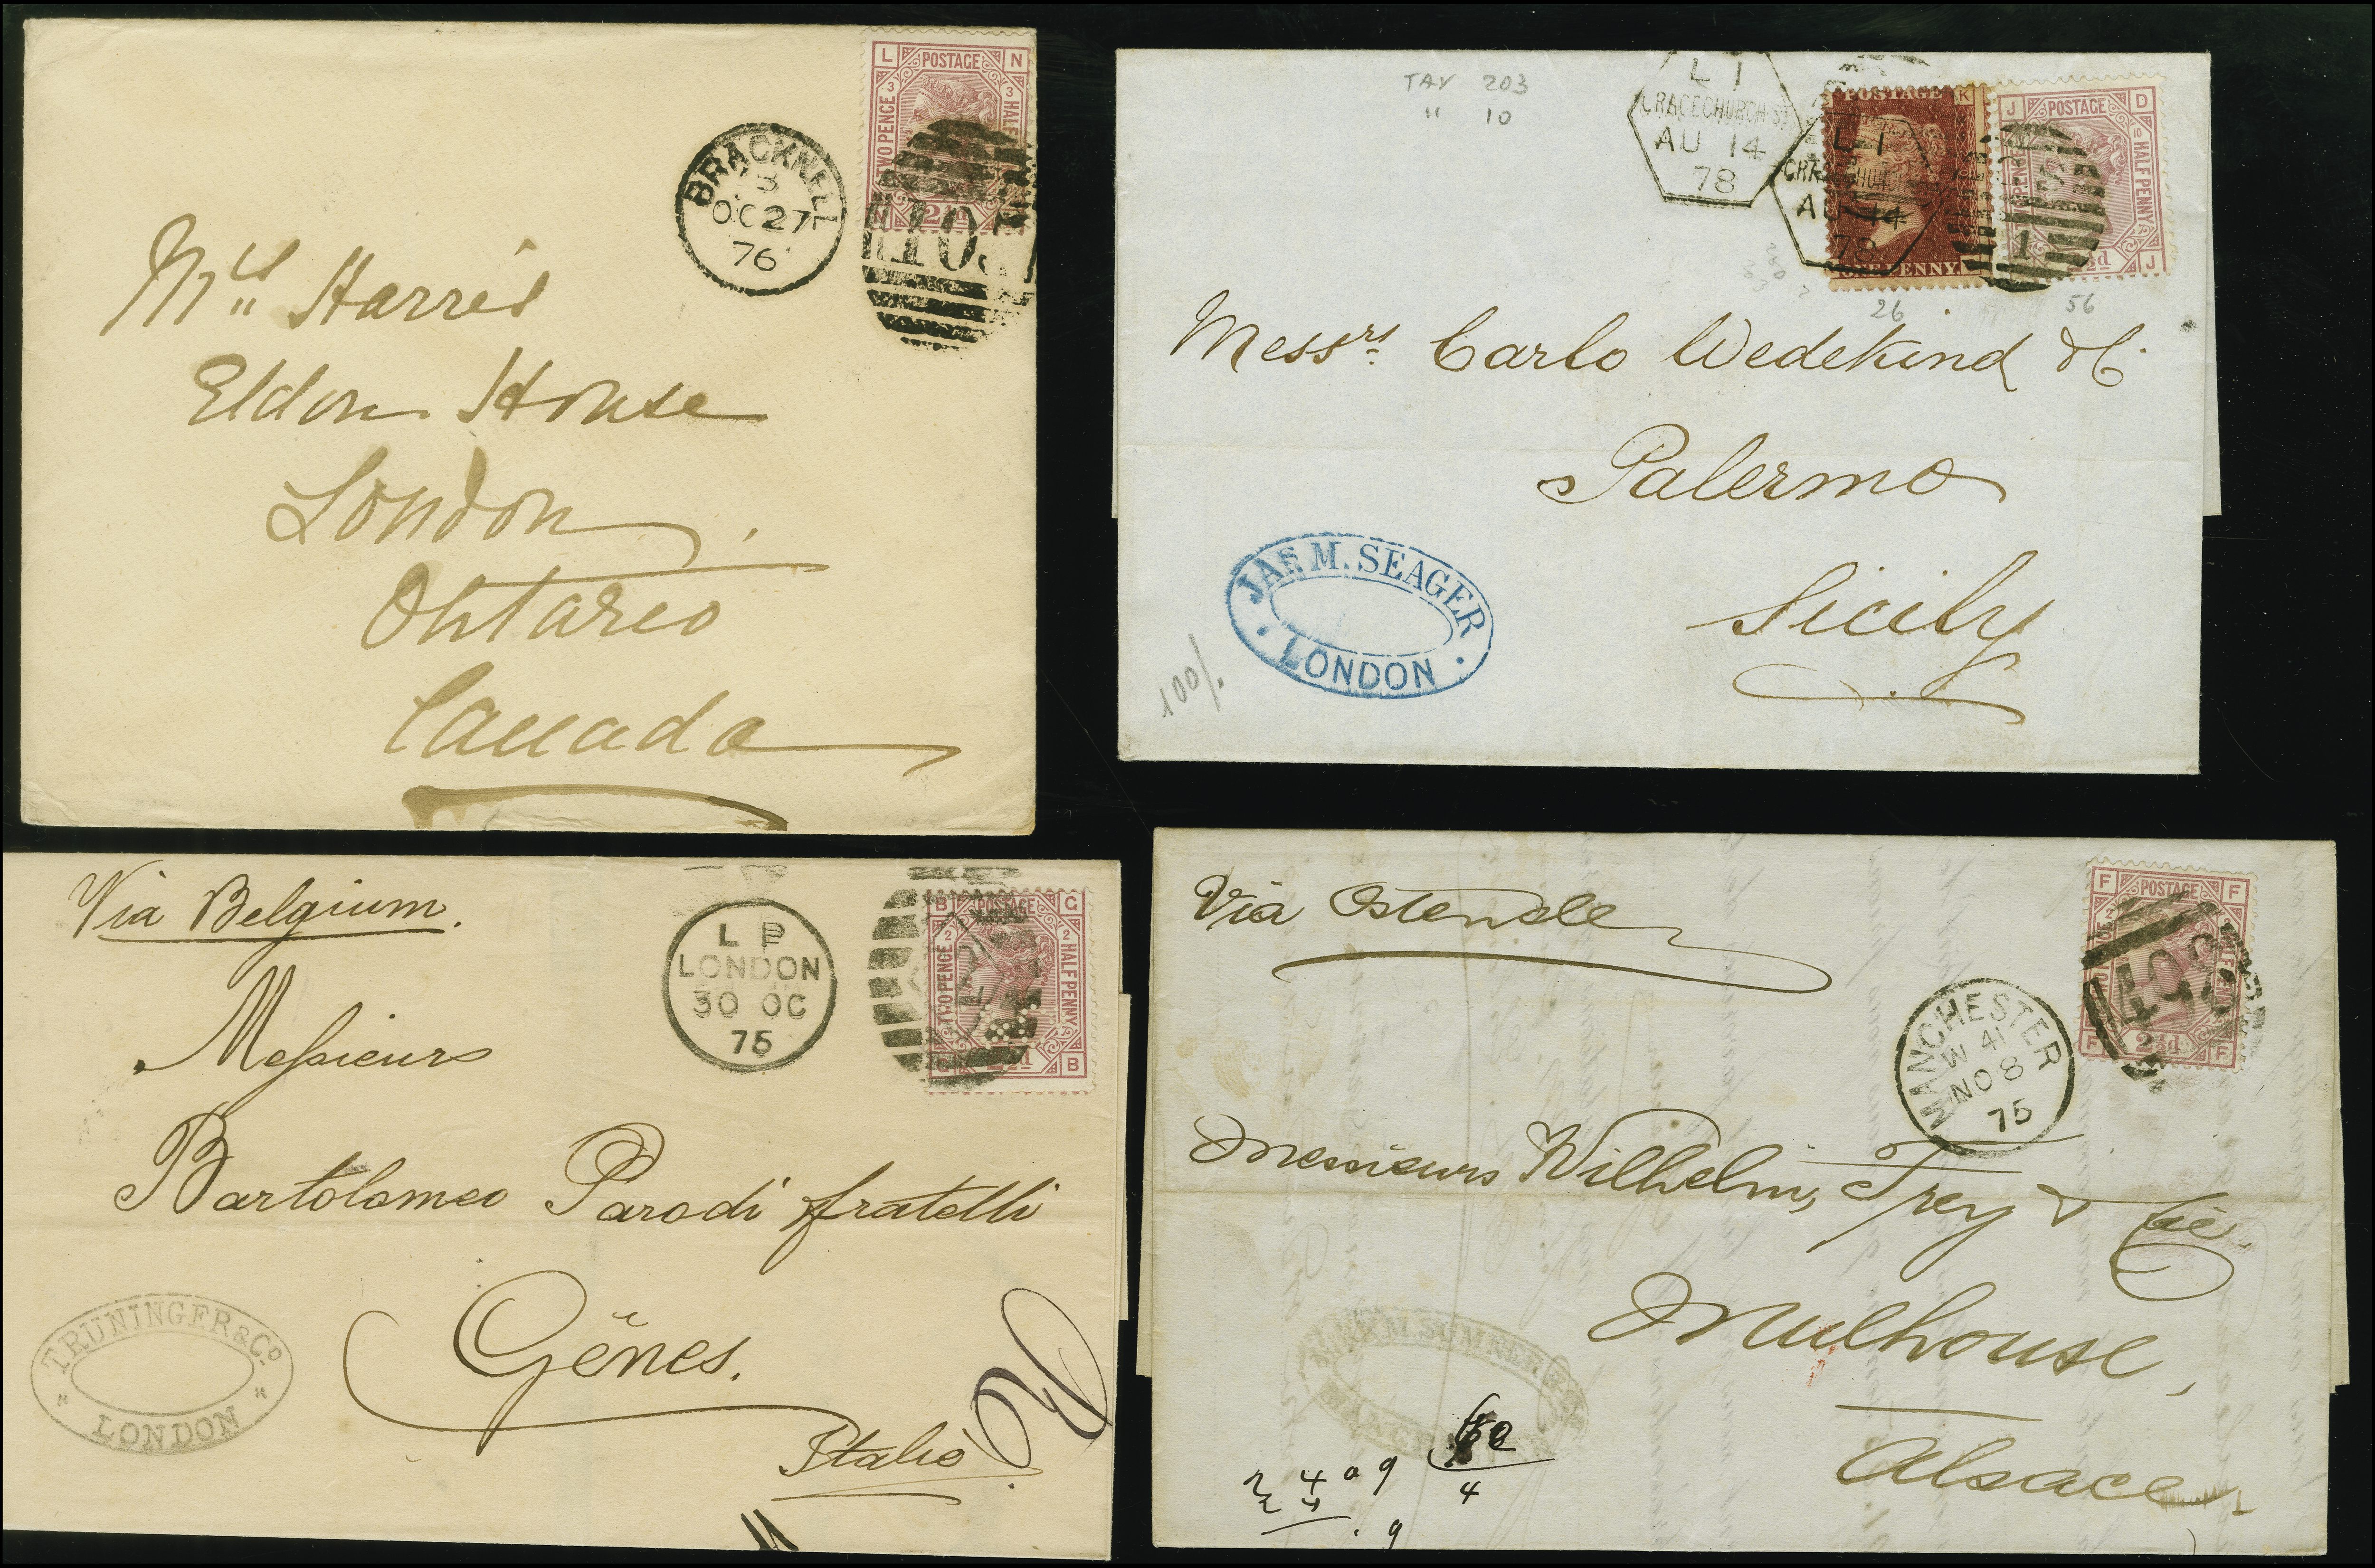 L POSTAGE N
3 3
TWO PENCE
HALF
2½d
BRACKNELL
B
OC 27
76
105
Mrs Harris
Eldon House
London
Ontario
Canada
TAY 203
" 10
L 1
GRACECHURCH ST
AU 14
78
L 1
GRACECHURCH
AU 14
78
POSTAGE K
ONE PENNY
J POSTAGE D
10 HALF PENNY
J
1
26
56
Messrs Carlo Wedekind & C.
Palermo
Sicily
JAS. M. SEAGER
LONDON
Via Belgium.
L P
LONDON
30 OC
75
B POSTAGE G
2 2
TWO PENCE
HALF PENNY
B
Messieurs
Bartolomeo Parodi fratelli
Gênes.
Italie
TRUNINGER & Co.
LONDON
Via Ostende
F POSTAGE F
2
F 2½d F
498
MANCHESTER
W 41
NO 8
75
Messieurs Wilhelm, Frey & Cie
Mulhouse,
Alsace
SUMNER
4
9